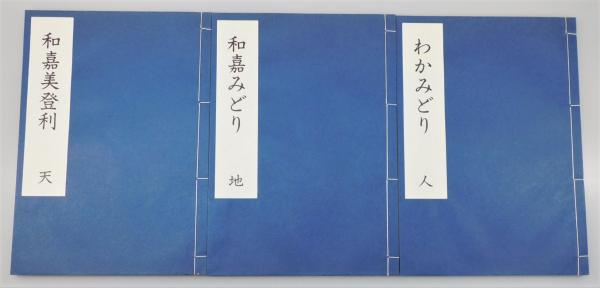 和嘉美登利
天
和嘉みどり
地
わかみどり
人